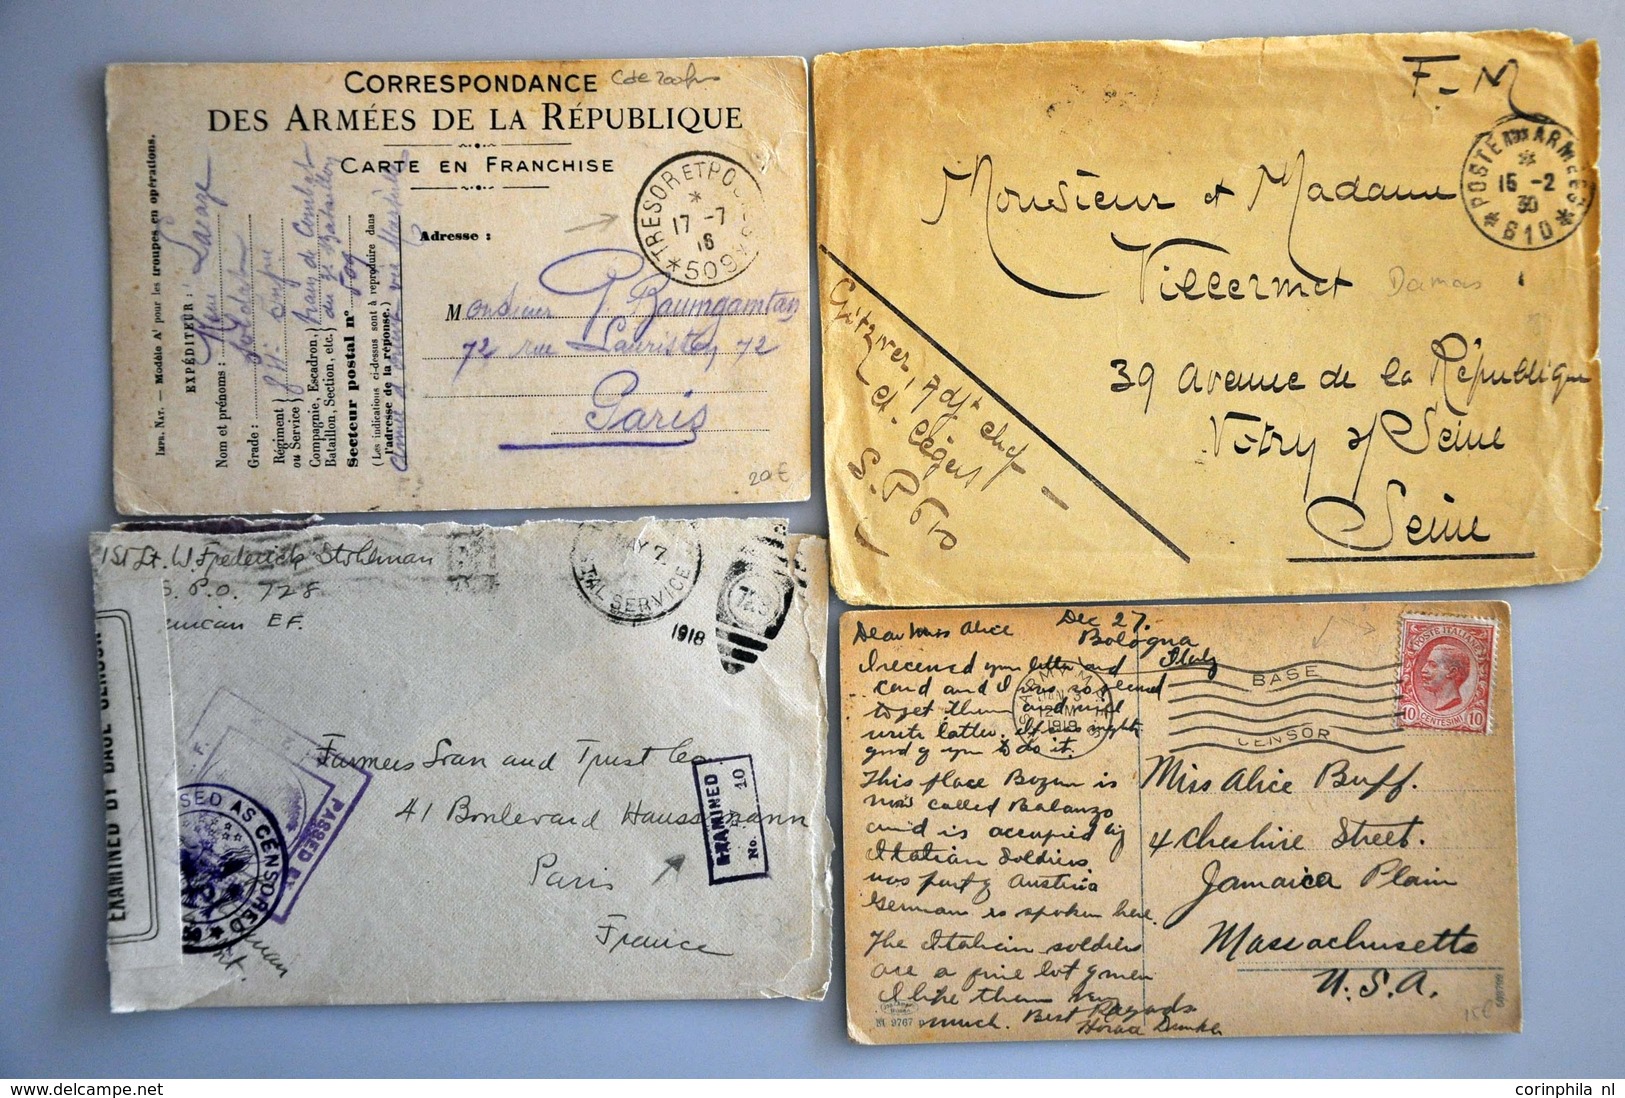 CORRESPONDANCE
DES ARMÉES DE LA RÉPUBLIQUE
CARTE EN FRANCHISE
TRESOR ET POSTES
* 17 -7 16
* 509 *
Adresse :
Monsieur P. Baumgamtan
72 rue Lauriston 72
Paris
20 €
IMPR. NAT. — Modèle A¹ pour les troupes en opérations.
EXPÉDITEUR :
Nom et prénoms :
Grade : Soldat
Régiment
ou Service
Compagnie, Escadron,
Bataillon, Section, etc.
Secteur postal n° 509
(Les indications ci-dessus sont à reproduire dans
l'adresse de la réponse.)
F. M
POSTE AUX ARMEES
* 15 -2 30
* 610 *
Monsieur et Madame
Villermet
Damas
39 Avenue de la République
Vitry s/ Seine
Seine
S. P. 610
1st Lt. W. Frederick Stohlman
P.O. 728
American E F.
MAY 7
POSTAL SERVICE
1918
EXAMINED BY BASE CENSOR
PASSED BY
PASSED AS CENSORED
Farmers Loan and Trust Co
41 Boulevard Haussmann
Paris
France
EXAMINED
BY 10
No.
Dec 27.
Bologna
Italy
Dear Miss Alice
I received your letter and
card and I was so pleased
to get them and will
write latter. It was mighty
good of you to do it.
This place Bozen is
now called Balanzo
and is occupied by
Italian Soldiers
was part of Austria
German is spoken here.
The Italian soldiers
are a fine lot of men
I like them very
much. Best Regards
Horace Dunkle
1919
BASE
CENSOR
POSTE ITALIANE
10 CENTESIMI 10
Miss Alice Buff.
4 Cheshire Street.
Jamaica Plain
Massachusetts
U. S. A.
9767
15€
corinphila nl